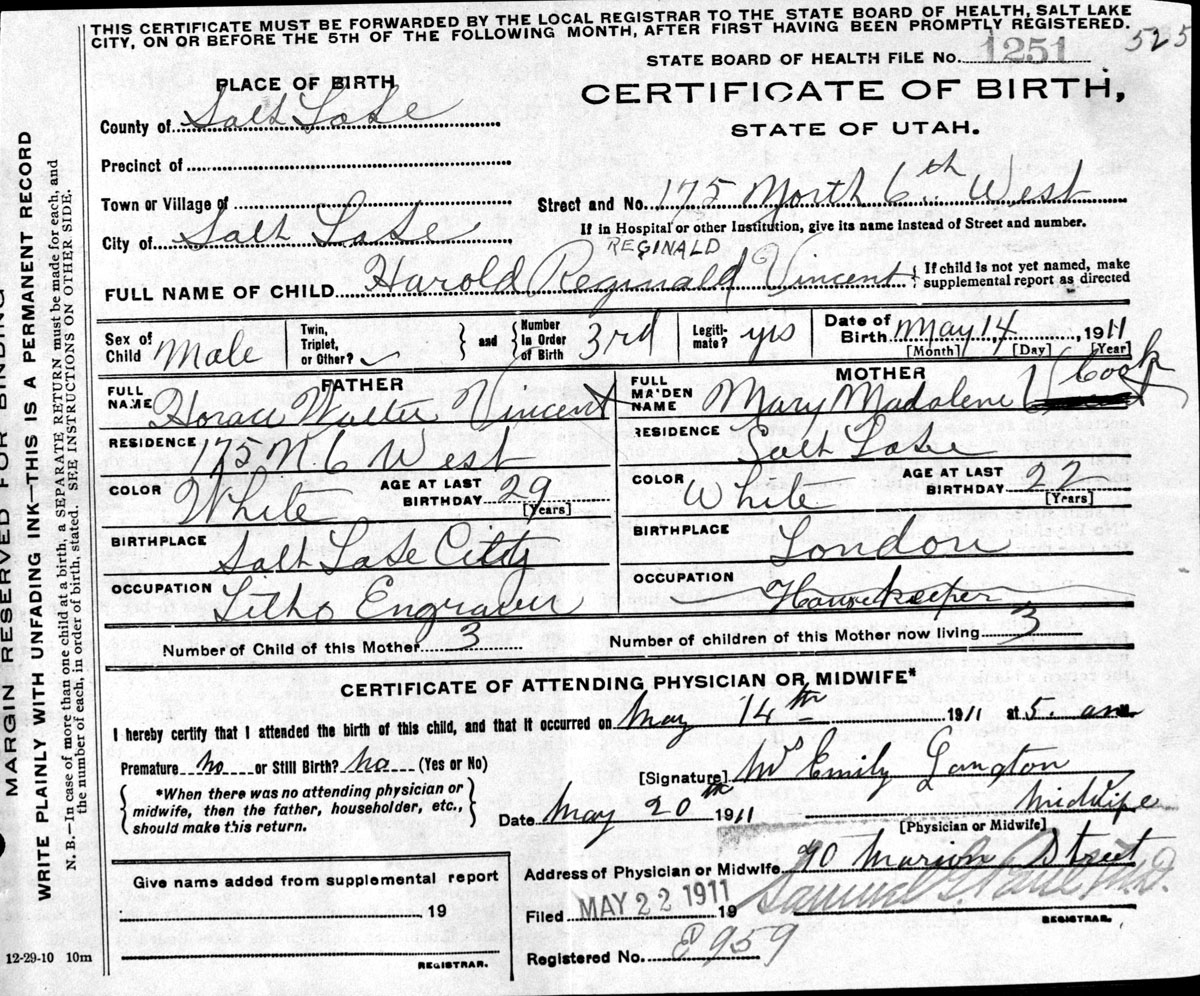 THIS CERTIFICATE MUST BE FORWARDED BY THE LOCAL REGISTRAR TO THE STATE BOARD OF HEALTH, SALT LAKE
CITY, ON OR BEFORE THE 5TH OF THE FOLLOWING MONTH, AFTER FIRST HAVING BEEN PROMPTLY REGISTERED.
525
STATE BOARD OF HEALTH FILE No. 1251
PLACE OF BIRTH
CERTIFICATE OF BIRTH,
STATE OF UTAH.
County of Salt Lake
Precinct of
Town or Village of
Street and No. 175 North 6th West
City of Salt Lake
If in Hospital or other Institution, give its name instead of Street and number.
REGINALD
FULL NAME OF CHILD Harold Reginald Vincent { If child is not yet named, make
supplemental report as directed
Sex of Child Male
Twin, Triplet, or Other? ✓
} and { Number In Order of Birth 3rd
Legitimate? yes
Date of Birth May 14, 1911
[Month] [Day] [Year]
FATHER
FULL NAME Horace Walter Vincent
RESIDENCE 175 N. 6 West
COLOR White AGE AT LAST BIRTHDAY 29 [Years]
BIRTHPLACE Salt Lake City
OCCUPATION Litho Engraver
MOTHER
FULL MAIDEN NAME Mary Madalene Cook
RESIDENCE Salt Lake
COLOR White AGE AT LAST BIRTHDAY 27 [Years]
BIRTHPLACE London
OCCUPATION Housekeeper
Number of Child of this Mother 3 Number of children of this Mother now living 3
CERTIFICATE OF ATTENDING PHYSICIAN OR MIDWIFE*
I hereby certify that I attended the birth of this child, and that it occurred on May 14th 1911 at 5. am
Premature no or Still Birth? no (Yes or No)
[Signature] Mrs Emily Langton
{ *When there was no attending physician or
midwife, then the father, householder, etc.,
should make this return. }
Date May 20th 1911 Midwife
[Physician or Midwife]
Address of Physician or Midwife 70 Marion Street
Give name added from supplemental report
19
REGISTRAR.
Filed MAY 22 1911 19 Samuel G. Paul, M.D.
REGISTRAR.
Registered No. 959
12-29-10 10m
MARGIN RESERVED FOR BINDING
WRITE PLAINLY WITH UNFADING INK—THIS IS A PERMANENT RECORD
N. B.—In case of more than one child at a birth, a SEPARATE RETURN must be made for each, and
the number of each, in order of birth, stated. SEE INSTRUCTIONS ON OTHER SIDE.